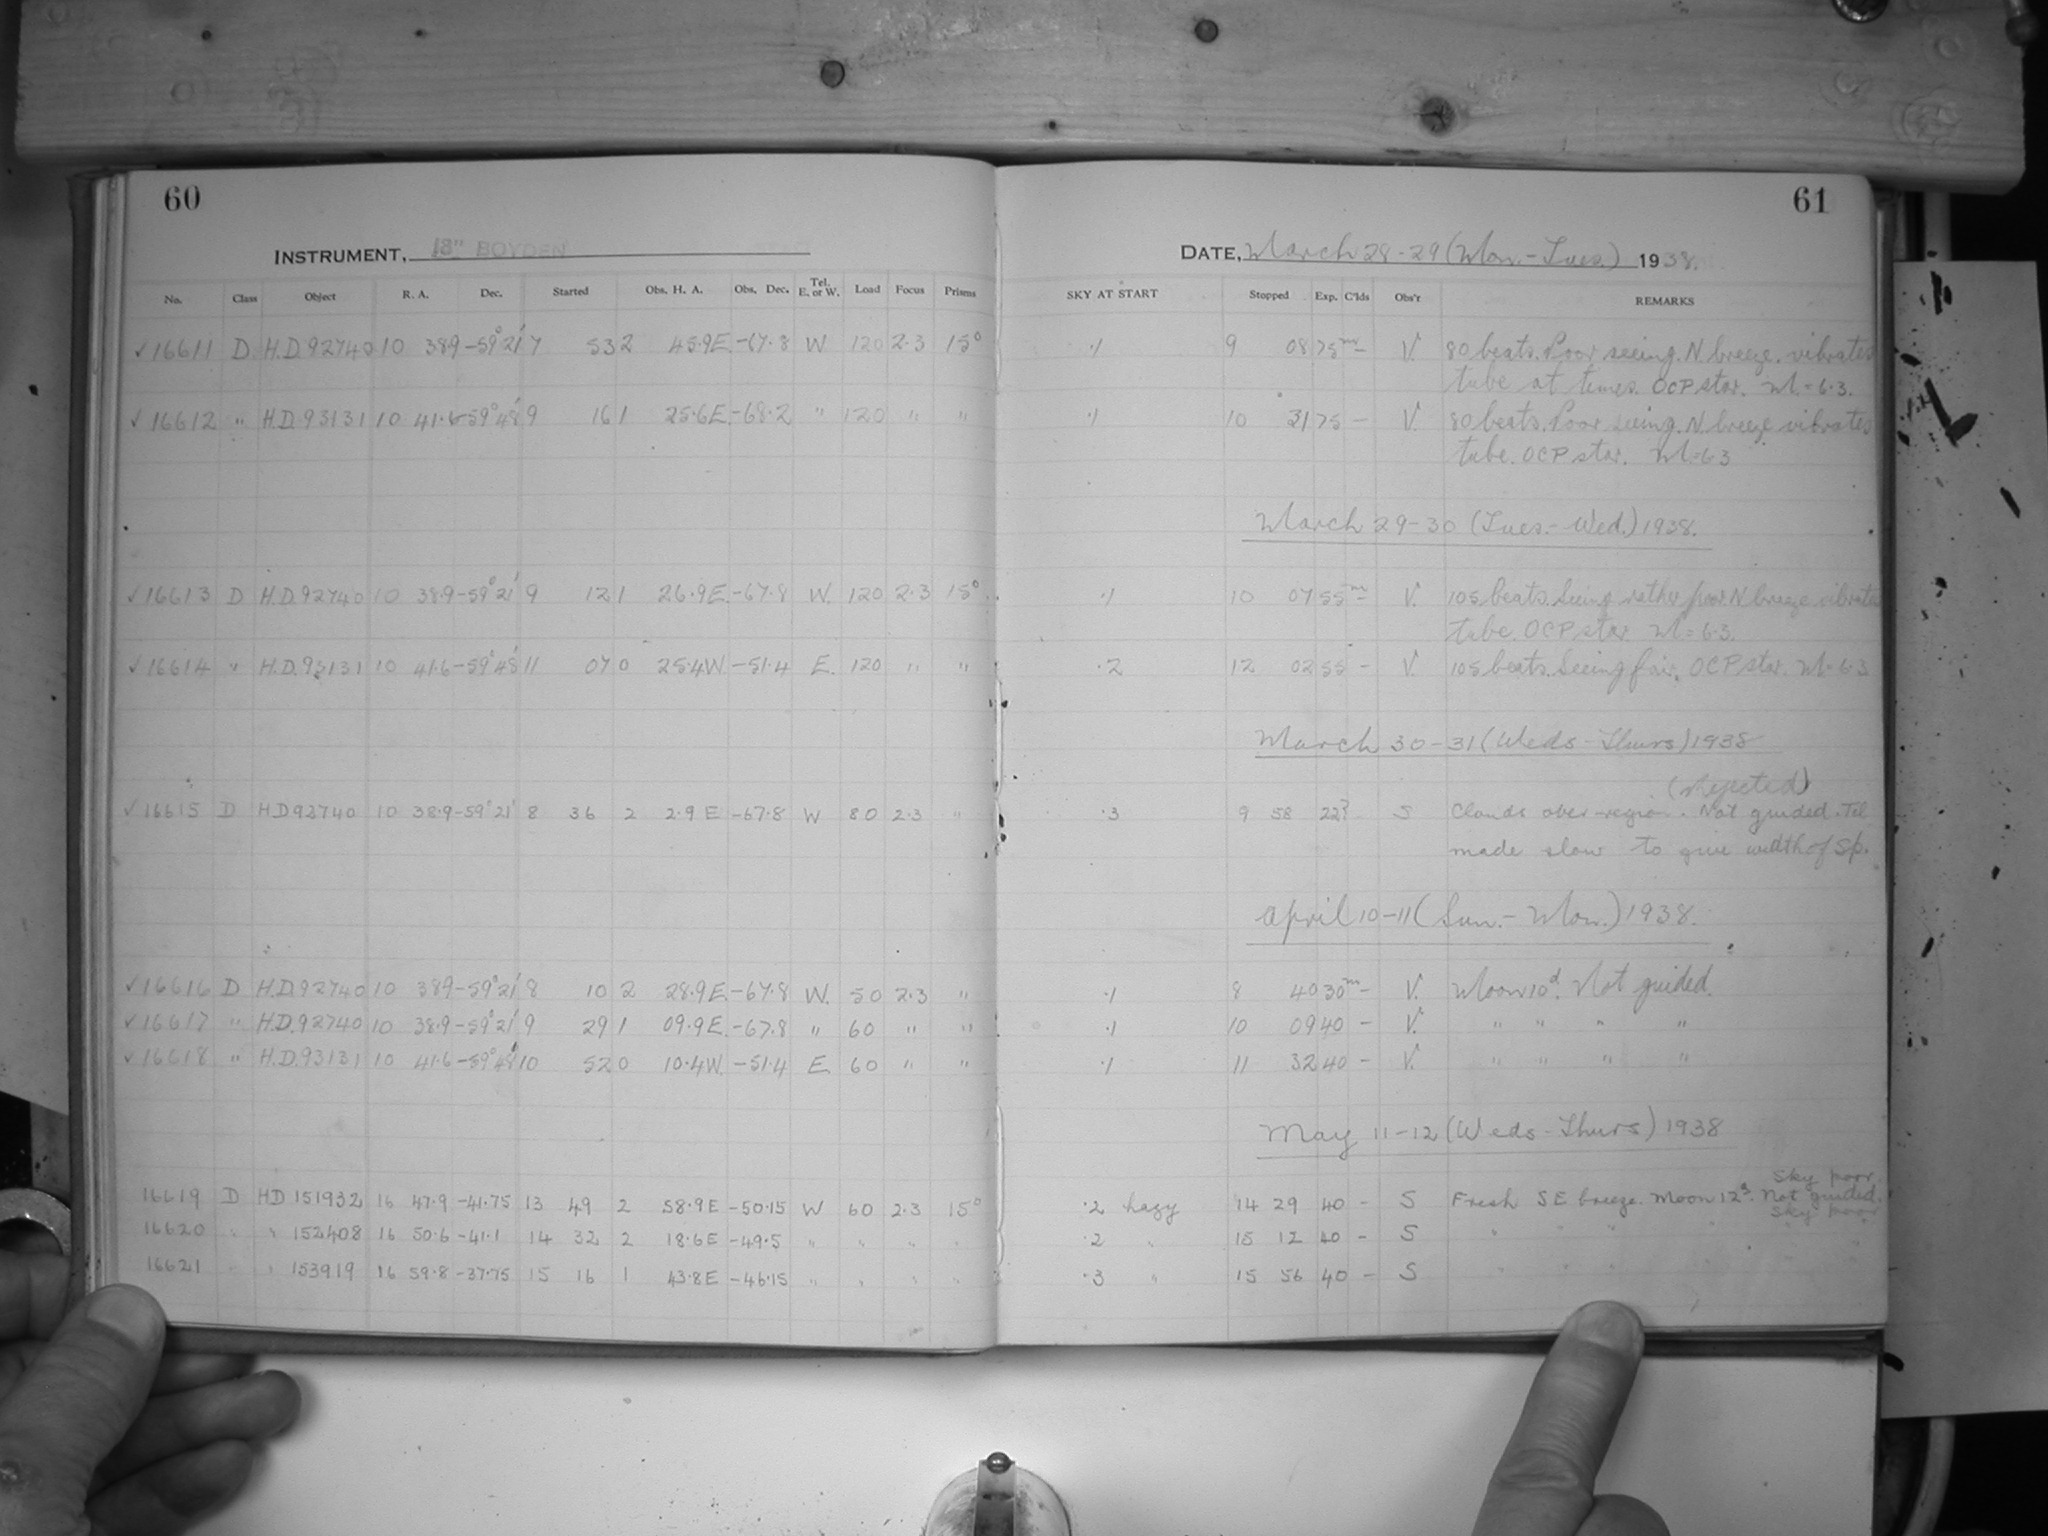 60
INSTRUMENT, 13" BOYDEN
No. Class Object R. A. Dec. Started Obs. H. A. Obs. Dec. Tel. E. or W. Load Focus Prisms
✓16611 D H.D.92740 10 38.9 -59°21' 7 53 2 45.9E. -67.8 W 120 2.3 15°
✓16612 " H.D.93131 10 41.6 -59°48' 9 16 1 25.6E. -68.2 " 120 " "
✓16613 D H.D.92740 10 38.9 -59°21' 9 12 1 26.9E. -67.8 W. 120 2.3 15°
✓16614 " H.D.93131 10 41.6 -59°48' 11 07 0 25.4W. -51.4 E. 120 " "
✓16615 D HD92740 10 38.9 -59°21' 8 36 2 2.9 E -67.8 W 80 2.3 "
✓16616 D H.D.92740 10 38.9 -59°21' 8 10 2 28.9E. -67.8 W. 50 2.3 "
✓16617 " H.D.92740 10 38.9 -59°21' 9 29 1 09.9E. -67.8 " 60 " "
✓16618 " H.D.93131 10 41.6 -59°48' 10 52 0 10.4W. -51.4 E 60 " "
16619 D HD 151932 16 47.9 -41.75 13 49 2 58.9E -50.15 W 60 2.3 15°
16620 " " 152408 16 50.6 -41.1 14 32 2 18.6E -49.5 " " " "
16621 " " 153919 16 59.8 -37.75 15 16 1 43.8E -46.15 " " " "
61
DATE, March 28-29 (Mon.-Tues.) 1938.
SKY AT START Stopped Exp. C'lds Obs'r REMARKS
.1 9 08 75m - V. 80 beats. Poor seeing. N. breeze. vibrates
tube at times. OCP star. M = 6.3.
.1 10 31 75 - V. 80 beats. Poor seeing. N. breeze vibrates
tube. OCP star. M = 6.3
March 29-30 (Tues.-Wed.) 1938.
.1 10 07 55m - V. 105 beats. Seeing rather poor. N breeze vibrates
tube. OCP star. M = 6.3.
.2 12 02 55 - V. 105 beats. Seeing fair. OCP star. M = 6.3
March 30-31 (Weds-Thurs) 1938
(Rejected)
.3 9 58 22? S Clouds over region. Not guided. Tel
made slow to give width of Sp.
April 10-11 (Sun.-Mon.) 1938.
.1 8 40 30m - V. Moon 10d. Not guided.
.1 10 09 40 - V. " " " "
.1 11 32 40 - V. " " " "
May 11-12 (Weds-Thurs) 1938
Sky poor
.2 hazy 14 29 40 - S Fresh SE breeze. Moon 12d. Not guided.
Sky poor
.2 " 15 12 40 - S " " " "
.3 " 15 56 40 - S " " " "